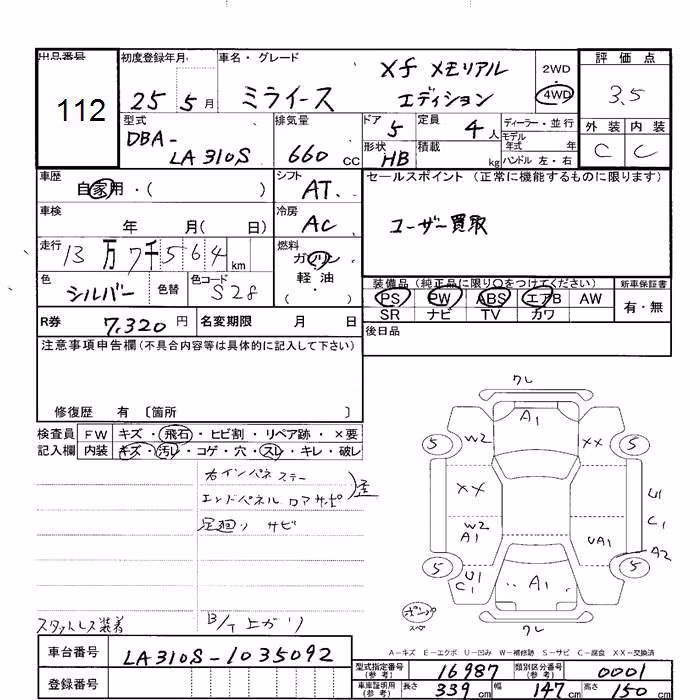 出品番号
112
初度登録年月
25 5月
車名・グレード
ミライース
Xf メモリアル
エディション
2WD
・
4WD
評価点
3.5
外装 内装
C C
型式
DBA-
LA310S
排気量
660 CC
ドア 5
定員 4人
ディーラー・並行
モデル
年式 年
形状 HB
積載 kg
ハンドル 左・右
車歴
自家用・( )
シフト
AT
セールスポイント (正常に機能するものに限ります)
ユーザー買取
車検
年 月( 日)
冷房
AC
走行
13万7千564km
燃料
ガソリン
軽油
( ・ )
色
シルバー
色替
色コード
S28
装備品 (純正品に限り○をつけてください)
新車保証書
PS PW ABS エアB AW
SR ナビ TV カワ
有・無
R券 7,320円
名変期限 月 日
後日品
注意事項申告欄(不具合内容等は具体的に記入して下さい)
修復歴 有 〔箇所 〕
検査員 FW キズ・飛石・ヒビ割・リペア跡・×要
記入欄 内装 キズ・汚レ・コゲ・穴・スレ・キレ・破レ
右インパネステー
エンドパネル ロアサポ
歪
足廻り サビ
スタットレス装着
B/T上がり
ワレ
A1
5 W2 XX 5
XX
W2
A1
UA1
U1
C1
A2
5 U1
C1
A1
5
ポンプ
スペア
ワレ
A-キズ E-エクボ U-凹み W-補修跡 S-サビ C-腐食 XX-交換済
車台番号 LA310S-1035092
登録番号
型式指定番号
(参考)
16987
類別区分番号
(参考)
0001
車庫証明用
(参考)
長さ 339cm 幅 147cm 高さ 150cm